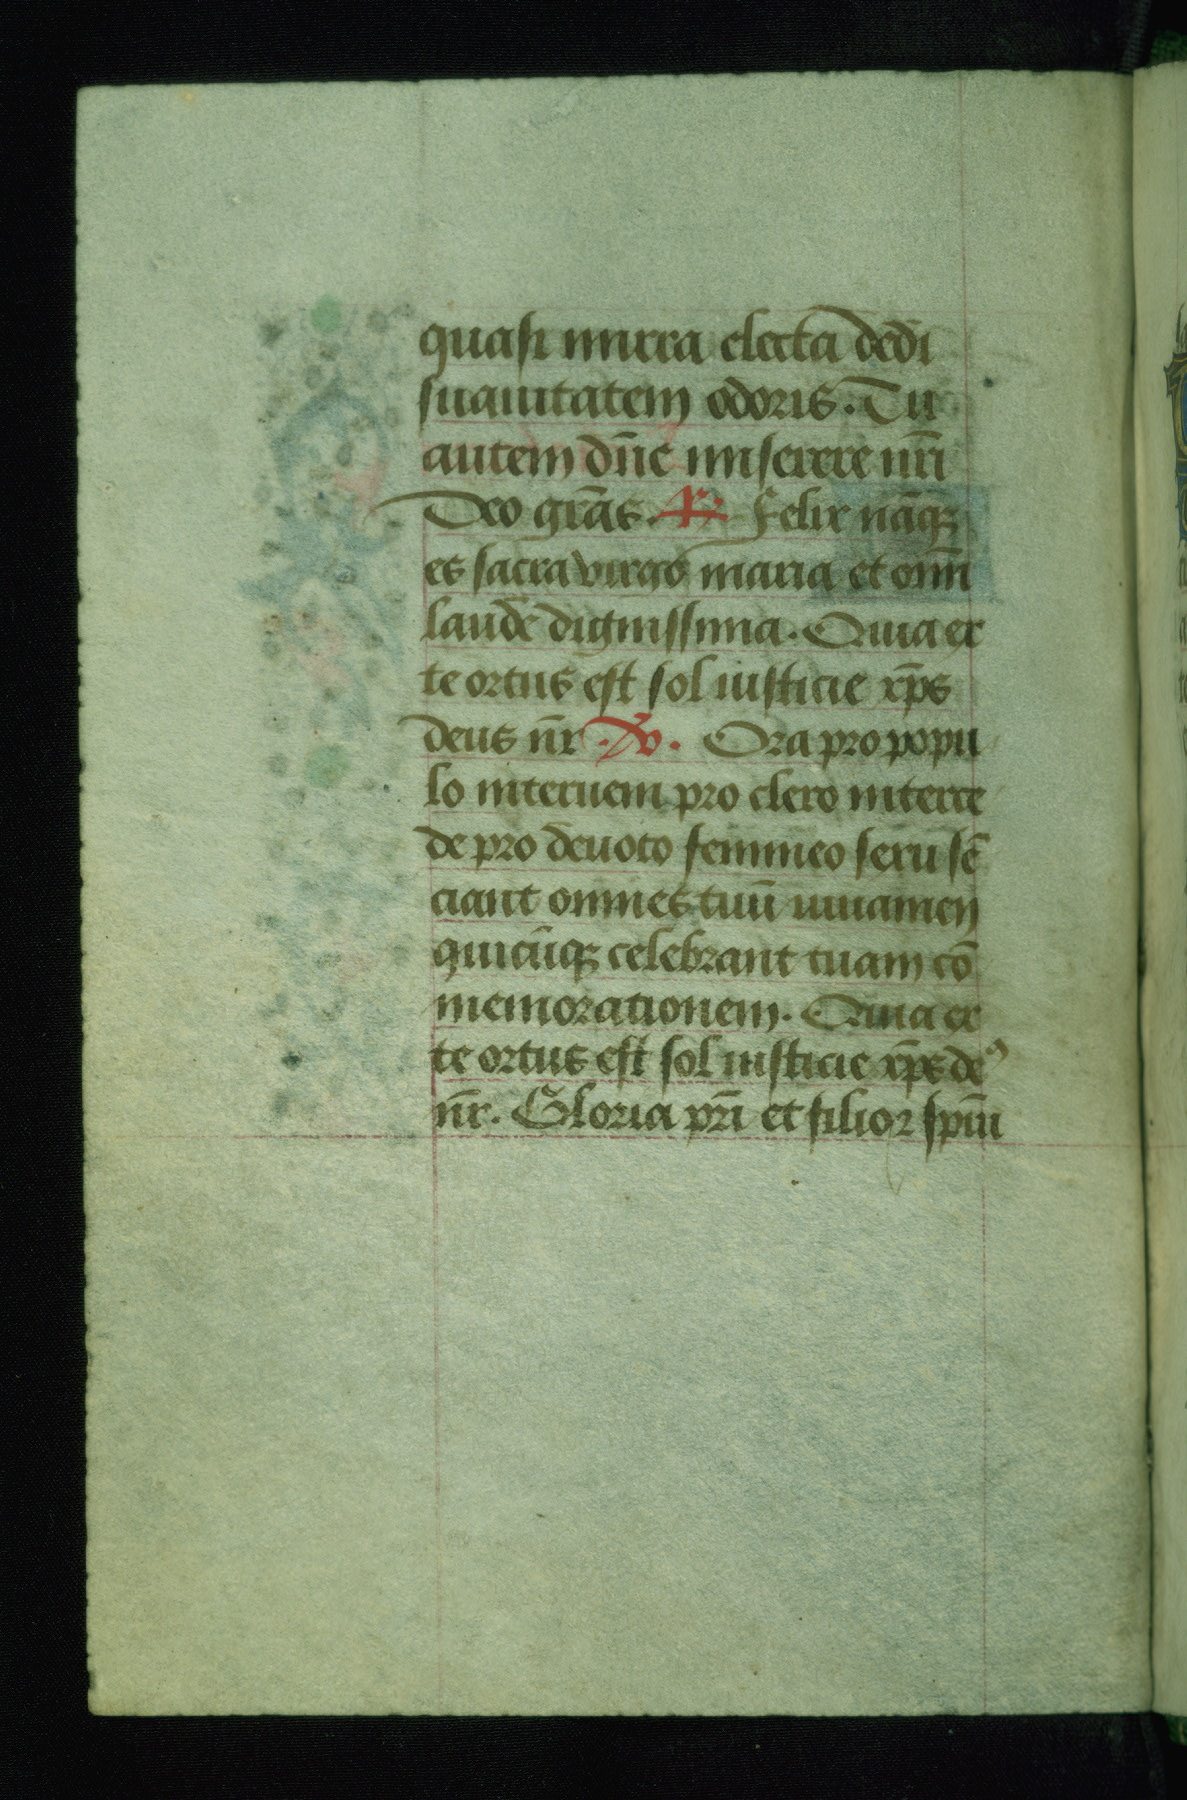 quasi mirra electa dedi
suauitatem odoris. Tu
autem dn̄e miserere nr̄i
Deo gr̄as. R̶. Felix nāqꝫ
es sacra virgo maria et om̄i
laude dignissima. Quia ex
te ortus est sol iusticie xp̄s
deus nr̄. V̶. Ora pro popu
lo interueni pro clero interce
de pro deuoto femineo sexu sē
ciant omnes tuū iuuamen
quicūqꝫ celebrant tuam cō
memorationem. Quia ex
te ortus est sol iusticie xp̄s deꝰ
nr̄. Gloria pr̄i et filior spiū